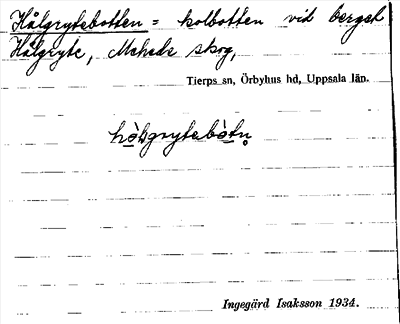 Hålgrytebotten = kolbotten vid berget
Hålgryte, Mehede skog,
Tierps sn, Örbyhus hd, Uppsala län.
hòlgrytebòtn̥
Ingegärd Isaksson 1934.